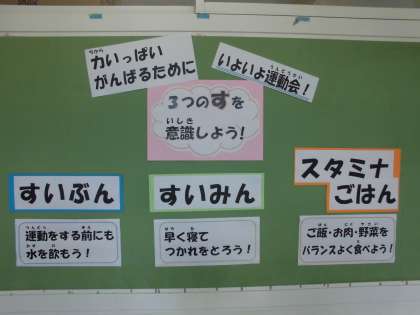 力いっぱい
がんばるために
いよいよ運動会！
3つのすを
意識しよう！
すいぶん
運動をする前にも
水を飲もう！
すいみん
早く寝て
つかれをとろう！
スタミナ
ごはん
ご飯・お肉・野菜を
バランスよく食べよう！